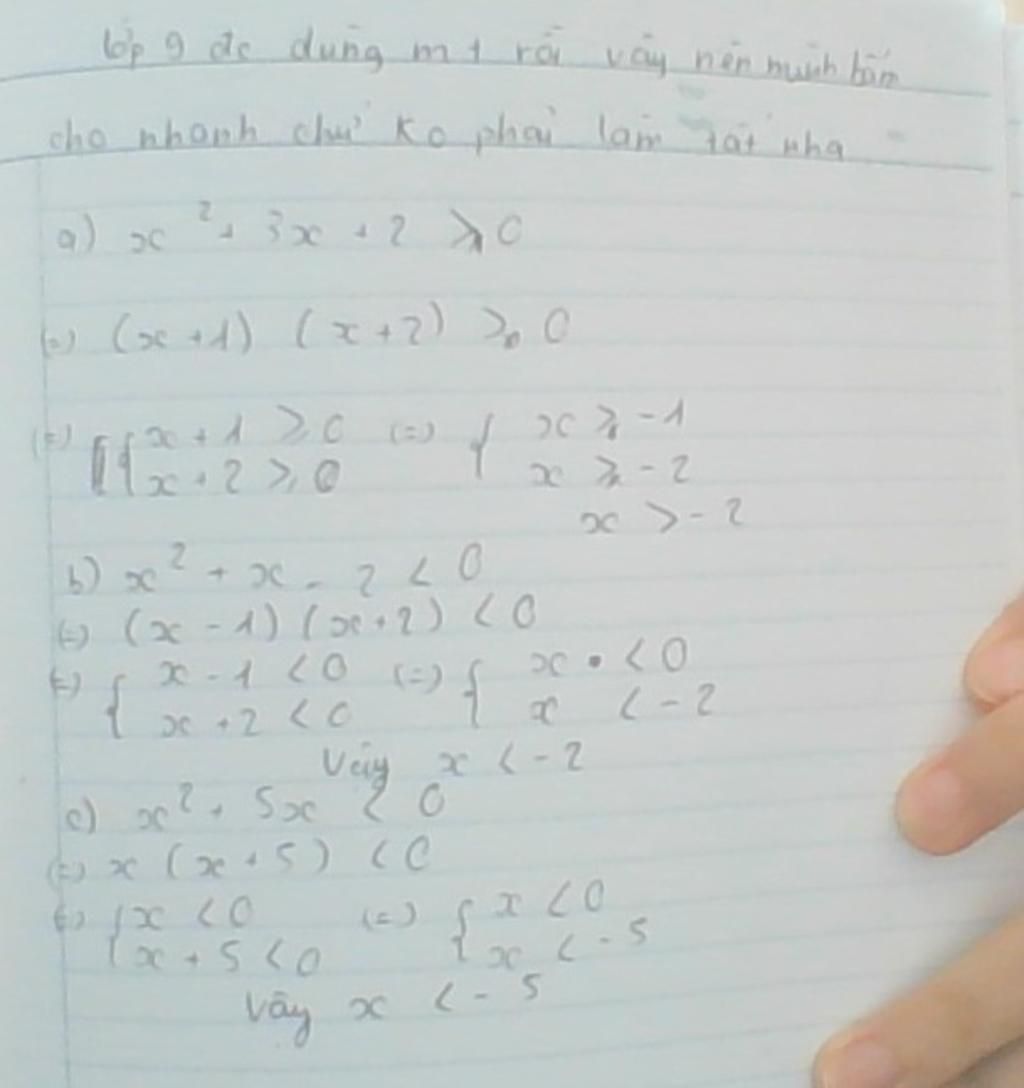 lớp 9 đc dùng mt rồi vậy nên mình bấm
cho nhanh chứ ko phải làm tắt nha
a) x² + 3x + 2 ⩾ 0
(=) (x + 1) (x + 2) ⩾ 0
(=) [{ x + 1 ⩾ 0 (=) { x ⩾ -1
x + 2 ⩾ 0 x ⩾ -2
x > -2
b) x² + x - 2 < 0
(=) (x - 1) (x + 2) < 0
(=) { x - 1 < 0 (=) { x < 0
x + 2 < 0 x < -2
Vậy x < -2
c) x² + 5x < 0
(=) x (x + 5) < 0
(=) { x < 0 (=) { x < 0
x + 5 < 0 x < -5
Vậy x < -5